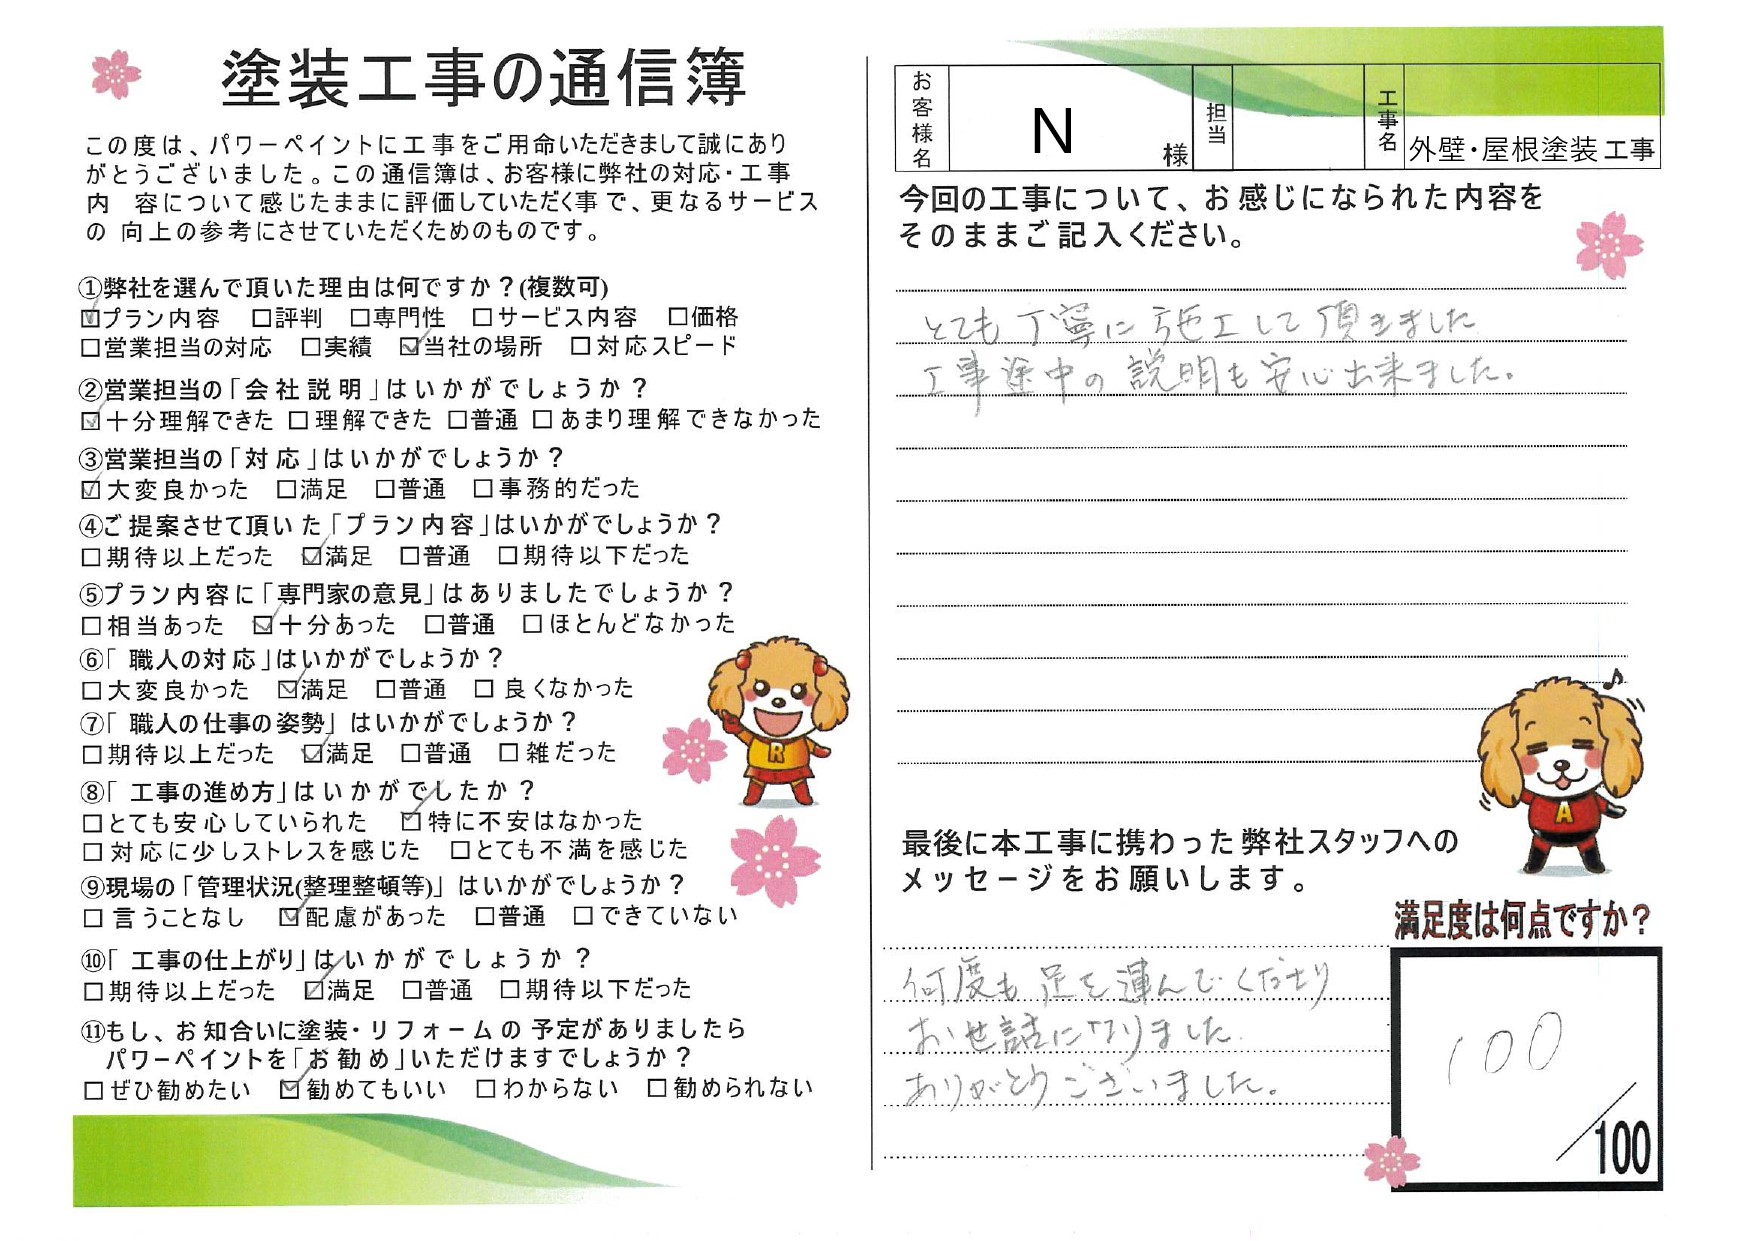 塗装工事の通信簿
この度は、パワーペイントに工事をご用命いただきまして誠にあり
がとうございました。この通信簿は、お客様に弊社の対応・工事
内 容について感じたままに評価していただく事で、更なるサービス
の 向上の参考にさせていただくためのものです。
①弊社を選んで頂いた理由は何ですか？(複数可)
☑プラン内容 □評判 □専門性 □サービス内容 □価格
□営業担当の対応 □実績 ☑当社の場所 □対応スピード
②営業担当の「会社説明」はいかがでしょうか？
☑十分理解できた □理解できた □普通 □あまり理解できなかった
③営業担当の「対応」はいかがでしょうか？
☑大変良かった □満足 □普通 □事務的だった
④ご提案させて頂いた「プラン内容」はいかがでしょうか？
□期待以上だった ☑満足 □普通 □期待以下だった
⑤プラン内容に「専門家の意見」はありましたでしょうか？
□相当あった ☑十分あった □普通 □ほとんどなかった
⑥「 職人の対応」はいかがでしょうか？
□大変良かった ☑満足 □普通 □ 良くなかった
⑦「 職人の仕事の姿勢」はいかがでしょうか？
□期待以上だった ☑満足 □普通 □ 雑だった
⑧「 工事の進め方」はいかがでしたか？
□とても安心していられた ☑特に不安はなかった
□対応に少しストレスを感じた □とても不満を感じた
⑨現場の「管理状況(整理整頓等)」はいかがでしょうか？
□ 言うことなし ☑配慮があった □普通 □できていない
⑩「 工事の仕上がり」はいかがでしょうか？
□期待以上だった ☑満足 □普通 □期待以下だった
⑪もし、お知合いに塗装・リフォームの予定がありましたら
パワーペイントを「お勧め」いただけますでしょうか？
□ぜひ勧めたい ☑勧めてもいい □わからない □勧められない
お客様名 N 様 担当 工事名 外壁・屋根塗装工事
今回の工事について、お感じになられた内容を
そのままご記入ください。
とても丁寧に施工して頂きました
工事途中の説明も安心出来ました。
R
A
最後に本工事に携わった弊社スタッフへの
メッセージをお願いします。
満足度は何点ですか？
何度も足を運んでくださり
お世話になりました
ありがとうございました。
100
/100